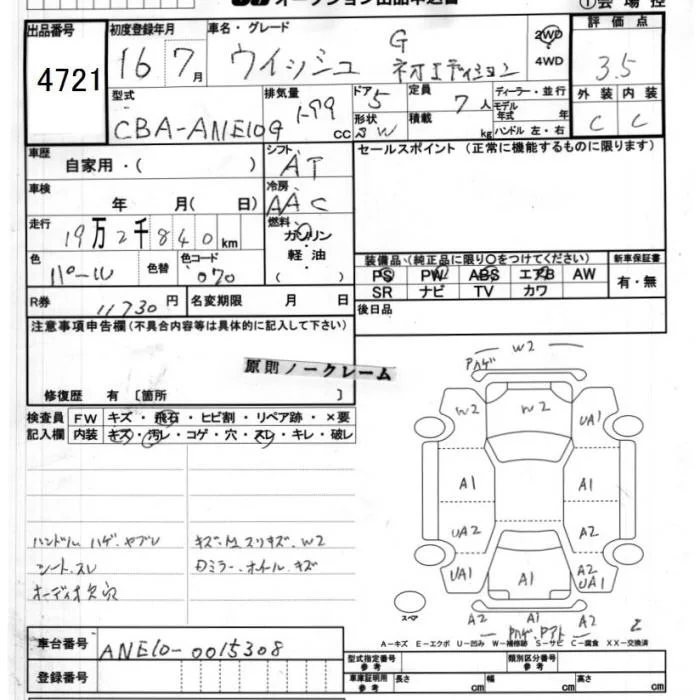 オークション出品申込書
①会場控
出品番号 4721
初度登録年月 16 7月
車名・グレード ウイッシュ G ネオエディション
2WD
4WD
評価点 3.5
外装 内装
C C
型式 CBA-ANE10G
排気量 1.99 cc
ドア 5
形状 SW
定員 7人
積載 kg
ディーラー・並行
モデル年式 年
ハンドル 左・右
車歴 自家用・( )
シフト AT
セールスポイント (正常に機能するものに限ります)
車検 年 月( 日)
冷房 AAC
走行 19万2千840km
燃料 ガソリン・軽油 ( )
色 パール
色替
色コード 070
装備品 (純正品に限り○をつけてください)
新車保証書
PS PW ABS エアB AW
SR ナビ TV カワ
有・無
R券 11730円
名変期限 月 日
後日品
注意事項申告欄(不具合内容等は具体的に記入して下さい)
原則ノークレーム
修復歴 有 [箇所 ]
検査員記入欄
FW キズ・飛石・ヒビ割・リペア跡・×要
内装 キズ・汚レ・コゲ・穴・スレ・キレ・破レ
ハンドル ハゲ.ヤブレ
シート.スレ
オーディオ欠品
キズ.M スリキズ.W2
Dミラー.ホイール.キズ
W2
Pハゲ
W2
W2
UA1
A1
A1
UA2
A2
UA1
A1
A2
UA1
スペア
A2
A1
A2
A-キズ E-エクボ U-凹み W-補修跡 S-サビ C-腐食 XX-交換済
車台番号 ANE10-0015308
登録番号
型式指定番号 参考
類別区分番号 参考
車庫証明用 参考
長さ cm
幅 cm
高さ cm